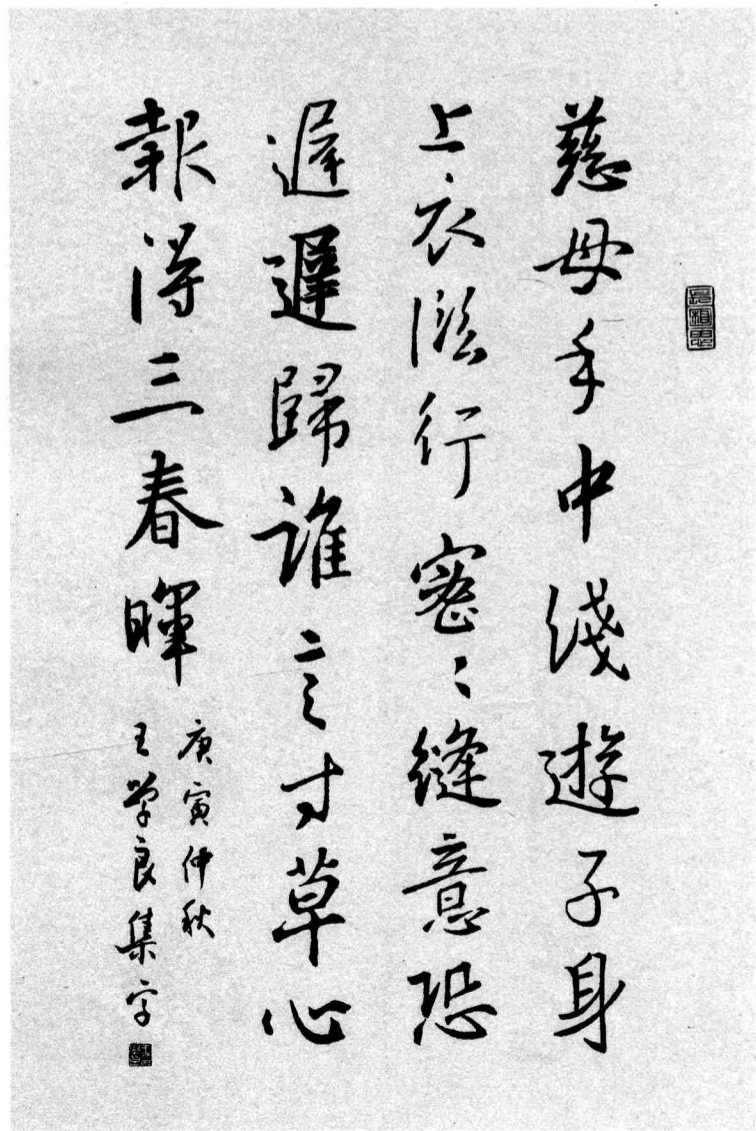 長相思
慈母手中綫遊子身
上衣臨行密〻縫意恐
遲遲歸誰言寸草心
報得三春暉
庚寅仲秋
王学良集字